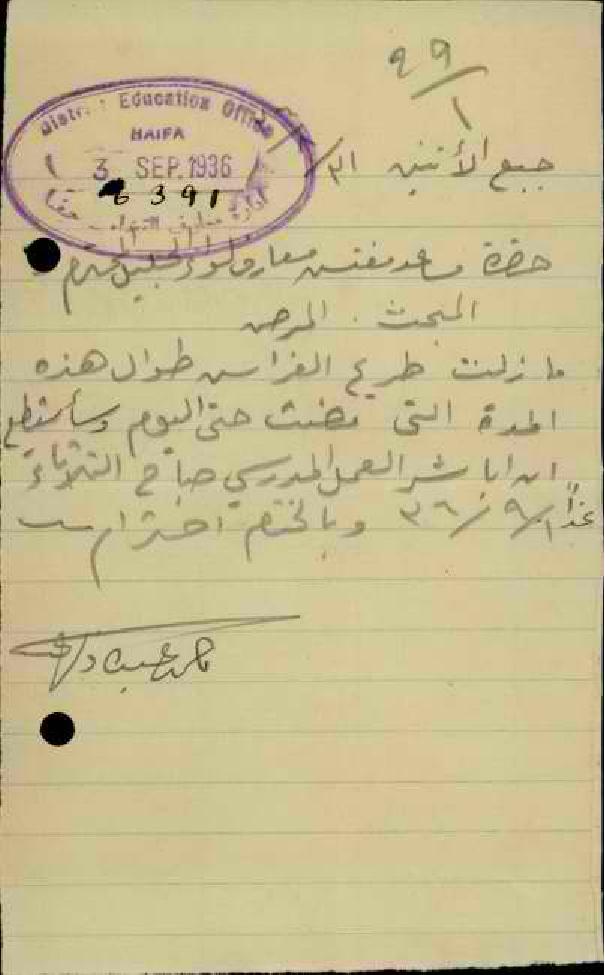 ٢٩
/
١
District Education Office
HAIFA
3 SEP. 1936
6391
ادارة معارف اللواء حيفا
الأثنين ٣١/
حضرة مساعد مفتش معارف لواء الجليل المحترم
المبحث . المرض
ما زلت طريح الفراش طوال هذه
المدة التي مضت حتى اليوم وسأستطيع
ان اباشر العمل المدرسي صباح الثلاثاء
غداً ١/٩/٣٦ وبالختام احترامي